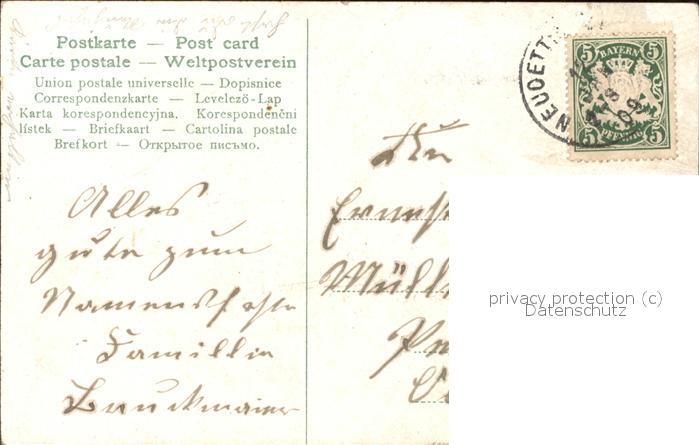 Postkarte — Post card
Carte postale — Weltpostverein
Union postale universelle — Dopisnice
Correspondenzkarte — Levelező-Lap
Karta korespondencyjna. Korespondenčni
lístek — Briefkaart — Cartolina postale
Brefkort — Открытое письмо.
NEUOETT
09
5 BAYERN 5
5 PFENNIG 5
An
Müll
Alles
gute zum
Namensfeste
Familie
Bruckmaier
privacy protection (c)
Datenschutz